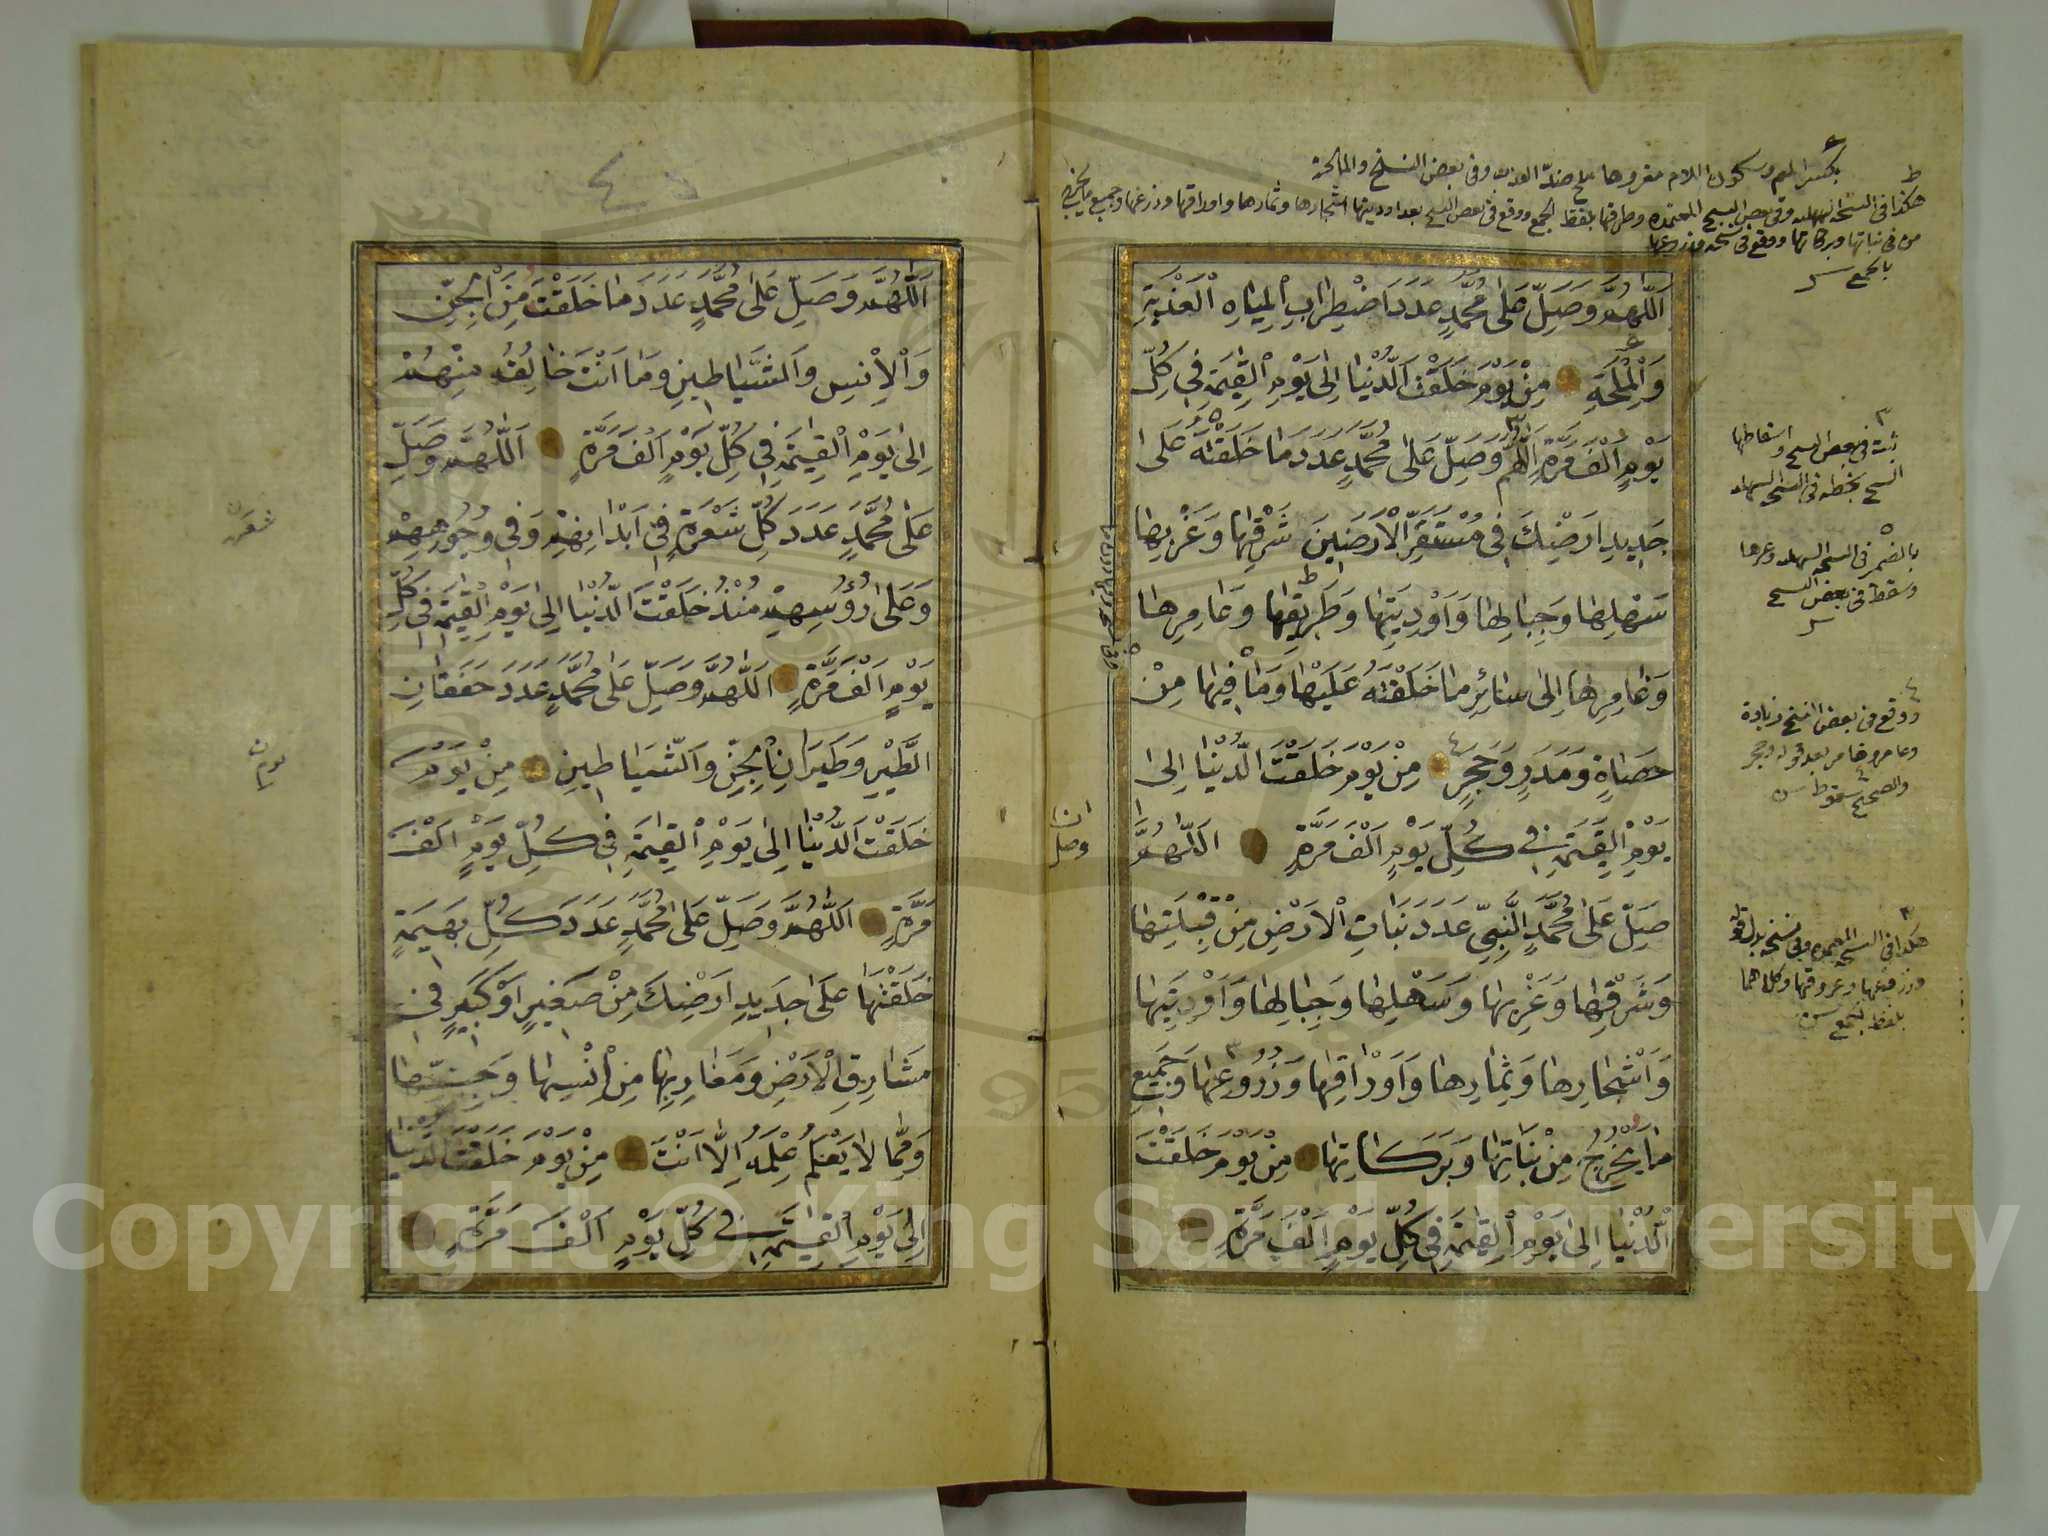 بكسر الميم وسكون اللام مقروها على ضد العذب وفي بعض النسخ والمالحة
هكذا في النسخة السهلية وفي بعض النسخ المعتمدة وطرقها بلفظ الجمع ووقع في بعض النسخ بعد اوديتها اشجارها وثمارها واوراقها وزرعها وجميع ما يخرج
من نباتها وبركاتها ووقع في نسخة وزروعها
بالجمع
اَللّٰهُمَّ وَصَلِّ عَلٰى مُحَمَّدٍ عَدَدَ اضْطِرَابِ الْمِيَاهِ الْعَذْبَةِ
وَالْمِلْحَةِ مِنْ يَوْمَ خَلَقْتَ الدُّنْيَا اِلٰى يَوْمِ الْقِيٰمَةِ فِي كُلِّ
يَوْمٍ اَلْفَ مَرَّةٍ اَللّٰهُمَّ وَصَلِّ عَلٰى مُحَمَّدٍ عَدَدَ مَا خَلَقْتَهُ عَلٰى
جَدِيدِ اَرْضِكَ فِي مُسْتَقَرِّ الْاَرَضِينَ شَرْقِهَا وَغَرْبِهَا
سَهْلِهَا وَجِبَالِهَا وَاَوْدِيَتِهَا وَطَرِيقِهَا وَعَامِرِهَا
وَغَامِرِهَا اِلٰى سَائِرِ مَا خَلَقْتَهُ عَلَيْهَا وَمَا فِيهَا مِنْ
حَصَاةٍ وَمَدَرٍ وَحَجَرٍ مِنْ يَوْمَ خَلَقْتَ الدُّنْيَا اِلٰى
يَوْمِ الْقِيٰمَةِ فِي كُلِّ يَوْمٍ اَلْفَ مَرَّةٍ اَللّٰهُمَّ
صَلِّ عَلٰى مُحَمَّدٍ النَّبِيِّ عَدَدَ نَبَاتِ الْاَرْضِ مِنْ قِبْلَتِهَا
وَشَرْقِهَا وَغَرْبِهَا وَسَهْلِهَا وَجِبَالِهَا وَاَوْدِيَتِهَا
وَاَشْجَارِهَا وَثِمَارِهَا وَاَوْرَاقِهَا وَزُرُوعِهَا وَجَمِيعِ
مَا يَخْرُجُ مِنْ نَبَاتِهَا وَبَرَكَاتِهَا مِنْ يَوْمَ خَلَقْتَ
الدُّنْيَا اِلٰى يَوْمِ الْقِيٰمَةِ فِي كُلِّ يَوْمٍ اَلْفَ مَرَّةٍ
ثبت في بعض النسخ واسقاطها
بالضمير في النسخة السهلية وغيرها
وسقط في بعض النسخ
ووقع في بعض النسخ زيادة
وعامروها من بعد قوله وحجر
والصحيح سقوط
هكذا في النسخ المعتمدة وفي نسخة بدل قوله
وزروعها وعروقها وكلاهما
بلفظ الجمع
اَللّٰهُمَّ وَصَلِّ عَلٰى مُحَمَّدٍ عَدَدَ مَا خَلَقْتَ مِنَ الْجِنِّ
وَالْاِنْسِ وَالشَّيَاطِينِ وَمَا اَنْتَ خَالِقُهُ مِنْهُمْ
اِلٰى يَوْمِ الْقِيٰمَةِ فِي كُلِّ يَوْمٍ اَلْفَ مَرَّةٍ اَللّٰهُمَّ وَصَلِّ
عَلٰى مُحَمَّدٍ عَدَدَ كُلِّ شَعْرَةٍ فِي اَبْدَانِهِمْ وَفِي وُجُوهِهِمْ
وَعَلٰى رُؤُسِهِمْ مُنْذُ خَلَقْتَ الدُّنْيَا اِلٰى يَوْمِ الْقِيٰمَةِ فِي كُلِّ
يَوْمٍ اَلْفَ مَرَّةٍ اَللّٰهُمَّ وَصَلِّ عَلٰى مُحَمَّدٍ عَدَدَ خَفَقَانِ
الطَّيْرِ وَطَيَرَانِ الْجِنِّ وَالشَّيَاطِينِ مِنْ يَوْمَ
خَلَقْتَ الدُّنْيَا اِلٰى يَوْمِ الْقِيٰمَةِ فِي كُلِّ يَوْمٍ اَلْفَ
مَرَّةٍ اَللّٰهُمَّ وَصَلِّ عَلٰى مُحَمَّدٍ عَدَدَ كُلِّ بَهِيمَةٍ
خَلَقْتَهَا عَلٰى جَدِيدِ اَرْضِكَ مِنْ صَغِيرٍ اَوْ كَبِيرٍ فِي
مَشَارِقِ الْاَرْضِ وَمَغَارِبِهَا مِنْ اِنْسِهَا وَجِنِّهَا
وَمِمَّا لَا يَعْلَمُ عِلْمَهُ اِلَّا اَنْتَ مِنْ يَوْمَ خَلَقْتَ الدُّنْيَا
اِلٰى يَوْمِ الْقِيٰمَةِ فِي كُلِّ يَوْمٍ اَلْفَ مَرَّةٍ
Copyright © King Saud University